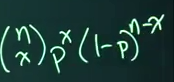 $\binom{n}{x} p^x (1-p)^{n-x}$